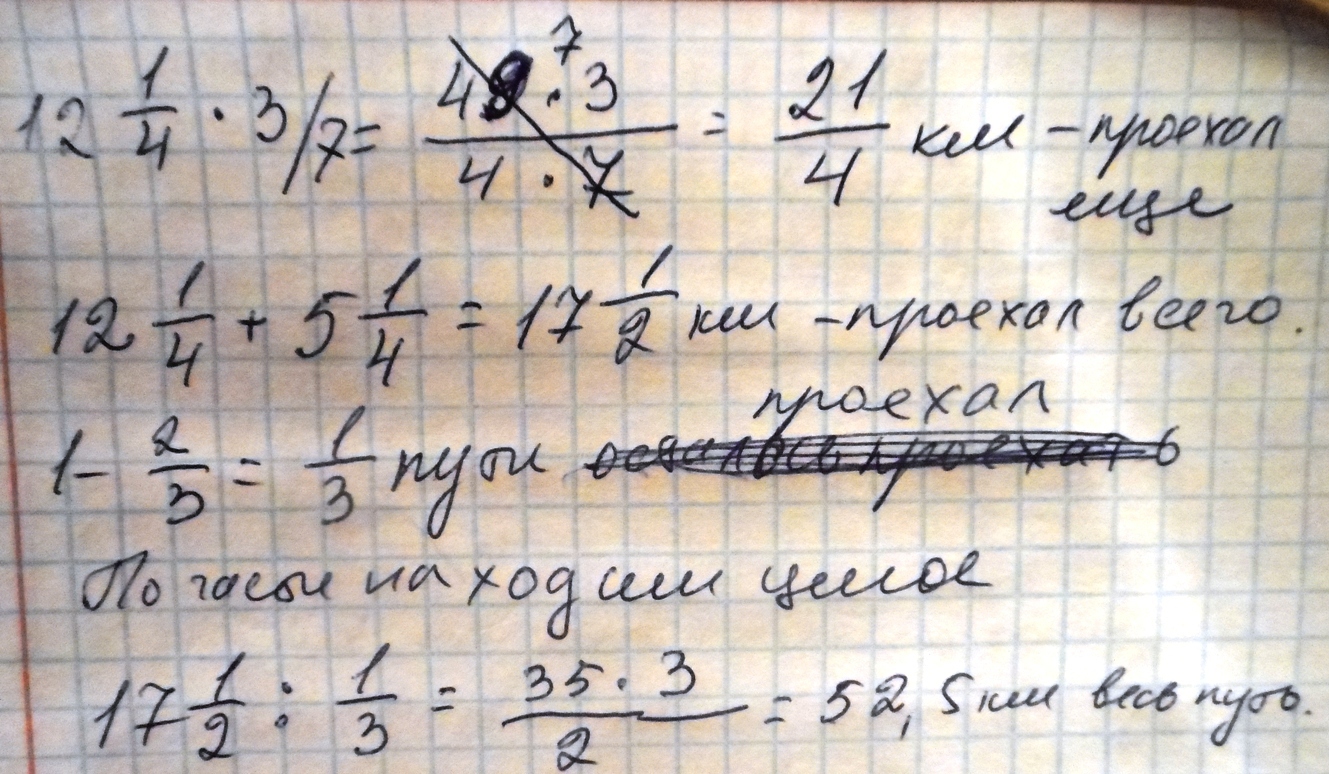 12 1/4 · 3/7 = 49 7 · 3 / 4 · 7 = 21/4 км – проехал
еще
12 1/4 + 5 1/4 = 17 1/2 км – проехал всего.
проехал
1 - 2/3 = 1/3 пути осталось проехать
По части находим целое
17 1/2 : 1/3 = 35 · 3 / 2 = 52,5 км весь путь.